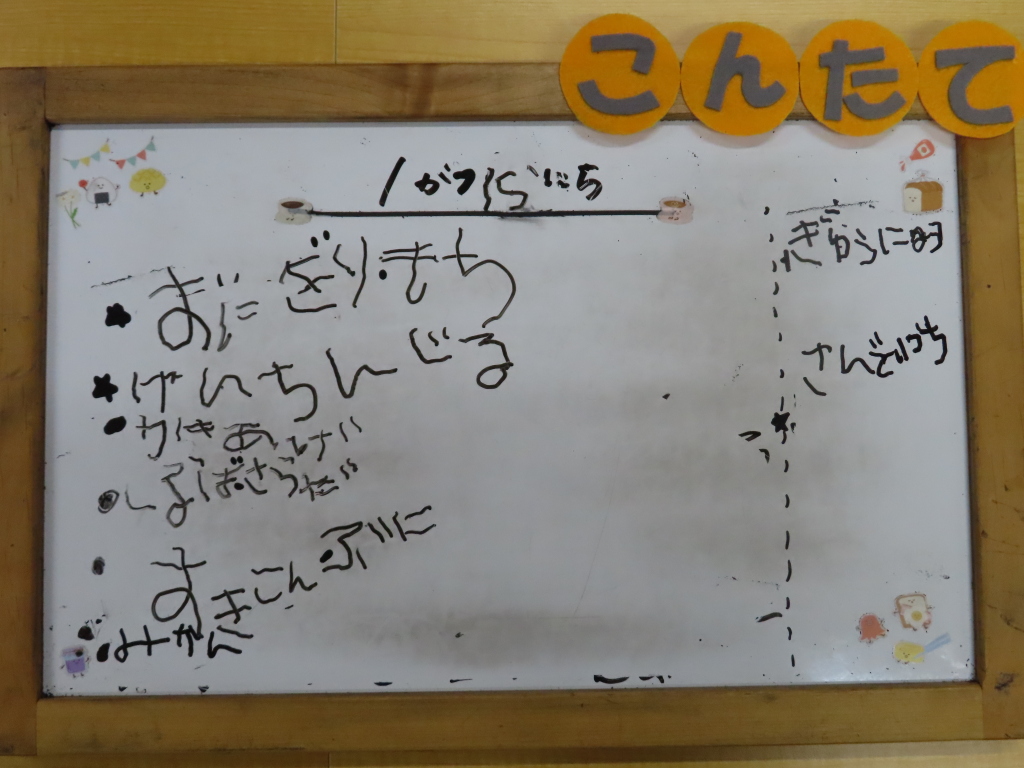 こんたて
1がつ15にち
おにぎり・もち
けんちんじる
かきあげ
しろばさらだ
きこんぶに
みかん
ぎゅうに
さんどいっち